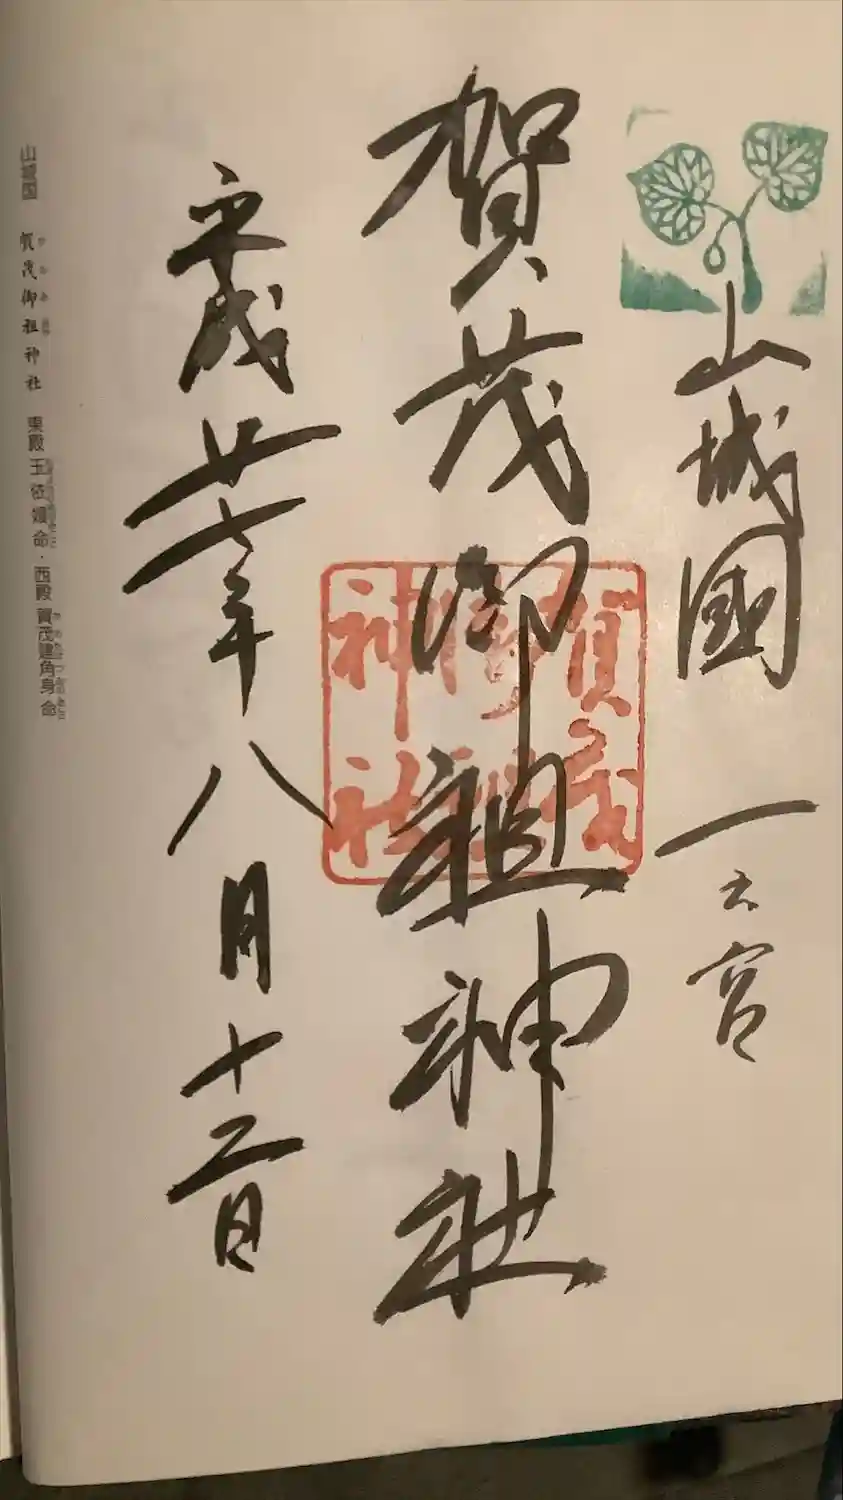 山城國 一之宮
賀茂御祖神社
賀茂
御祖
神社
平成廿七年八月十二日
山城国 賀茂御祖神社 東殿 玉依媛命・西殿 賀茂建角身命